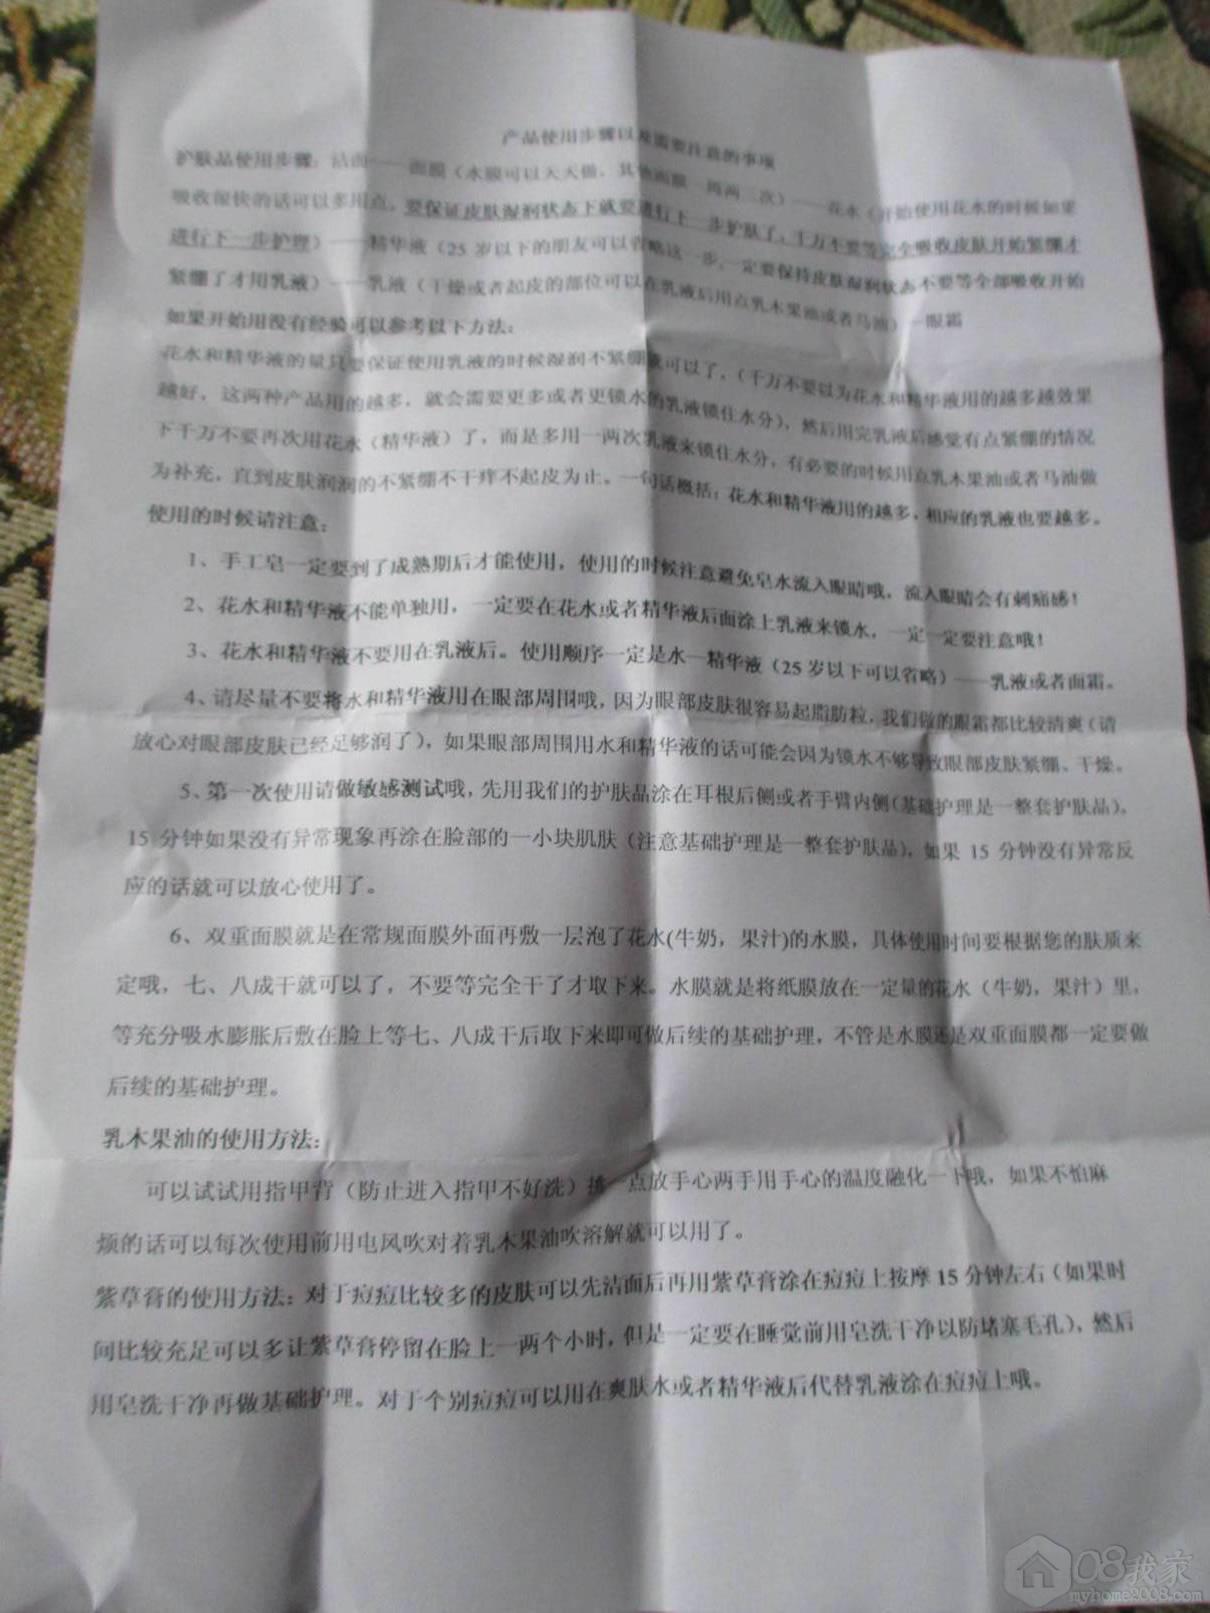 产品使用步骤以及需要注意的事项
护肤品使用步骤：洁面——面膜（水膜可以天天做，其他面膜一周两三次）——花水（开始使用花水的时候如果
吸收很快的话可以多用点，要保证皮肤湿润状态下就要进行下一步护肤了，千万不要等完全吸收皮肤开始紧绷才
进行下一步护理）——精华液（25 岁以下的朋友可以省略这一步，一定要保持皮肤湿润状态不要等全部吸收开始
紧绷了才用乳液）——乳液（干燥或者起皮的部位可以在乳液后用点乳木果油或者马油）—眼霜
如果开始用没有经验可以参考以下方法：
花水和精华液的量只要保证使用乳液的时候湿润不紧绷就可以了，（千万不要以为花水和精华液用的越多越效果
越好，这两种产品用的越多，就会需要更多或者更锁水的乳液锁住水分），然后用完乳液后感觉有点紧绷的情况
下千万不要再次用花水（精华液）了，而是多用一两次乳液来锁住水分，有必要的时候用点乳木果油或者马油做
为补充，直到皮肤润润的不紧绷不干痒不起皮为止。一句话概括：花水和精华液用的越多，相应的乳液也要越多。
使用的时候请注意：
1、手工皂一定要到了成熟期后才能使用，使用的时候注意避免皂水流入眼睛哦，流入眼睛会有刺痛感！
2、花水和精华液不能单独用，一定要在花水或者精华液后面涂上乳液来锁水，一定一定要注意哦！
3、花水和精华液不要用在乳液后。使用顺序一定是水—精华液（25 岁以下可以省略）——乳液或者面霜。
4、请尽量不要将水和精华液用在眼部周围哦，因为眼部皮肤很容易起脂肪粒，我们做的眼霜都比较清爽（请
放心对眼部皮肤已经足够润了），如果眼部周围用水和精华液的话可能会因为锁水不够导致眼部皮肤紧绷、干燥。
5、第一次使用请做敏感测试哦，先用我们的护肤品涂在耳根后侧或者手臂内侧（基础护理是一整套护肤品），
15 分钟如果没有异常现象再涂在脸部的一小块肌肤（注意基础护理是一整套护肤品），如果 15 分钟没有异常反
应的话就可以放心使用了。
6、双重面膜就是在常规面膜外面再敷一层泡了花水(牛奶，果汁)的水膜，具体使用时间要根据您的肤质来
定哦，七、八成干就可以了，不要等完全干了才取下来。水膜就是将纸膜放在一定量的花水（牛奶，果汁）里，
等充分吸水膨胀后敷在脸上等七、八成干后取下来即可做后续的基础护理，不管是水膜还是双重面膜都一定要做
后续的基础护理。
乳木果油的使用方法：
可以试试用指甲背（防止进入指甲不好洗）挑一点放手心两手用手心的温度融化一下哦，如果不怕麻
烦的话可以每次使用前用电风吹对着乳木果油吹溶解就可以用了。
紫草膏的使用方法：对于痘痘比较多的皮肤可以先洁面后再用紫草膏涂在痘痘上按摩 15 分钟左右（如果时
间比较充足可以多让紫草膏停留在脸上一两个小时，但是一定要在睡觉前用皂洗干净以防堵塞毛孔），然后
用皂洗干净再做基础护理。对于个别痘痘可以用在爽肤水或者精华液后代替乳液涂在痘痘上哦。
08我家
myhome2008.com